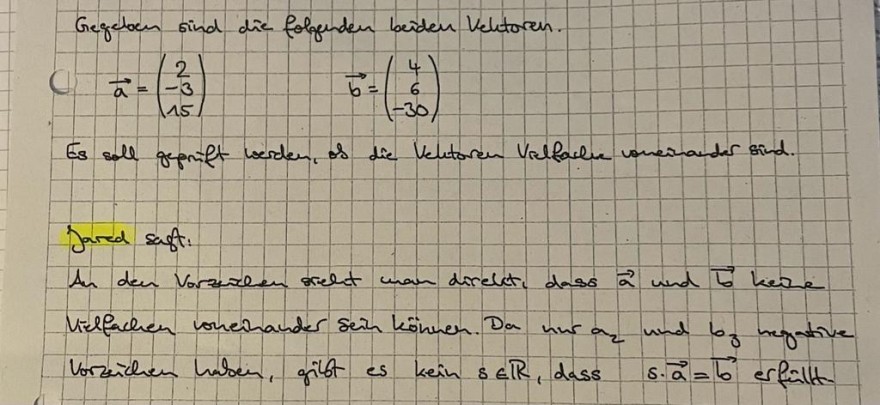 Gegeben sind die folgenden beiden Vektoren.
a⃗ = (2 -3 15) b⃗ = (4 6 -30)
Es soll geprüft werden, ob die Vektoren Vielfache voneinander sind.
Jared sagt:
An den Vorzeichen sieht man direkt, dass a⃗ und b⃗ keine
Vielfachen voneinander sein können. Da nur a₂ und b₃ negative
Vorzeichen haben, gibt es kein s ∈ ℝ, dass s · a⃗ = b⃗ erfüllt.